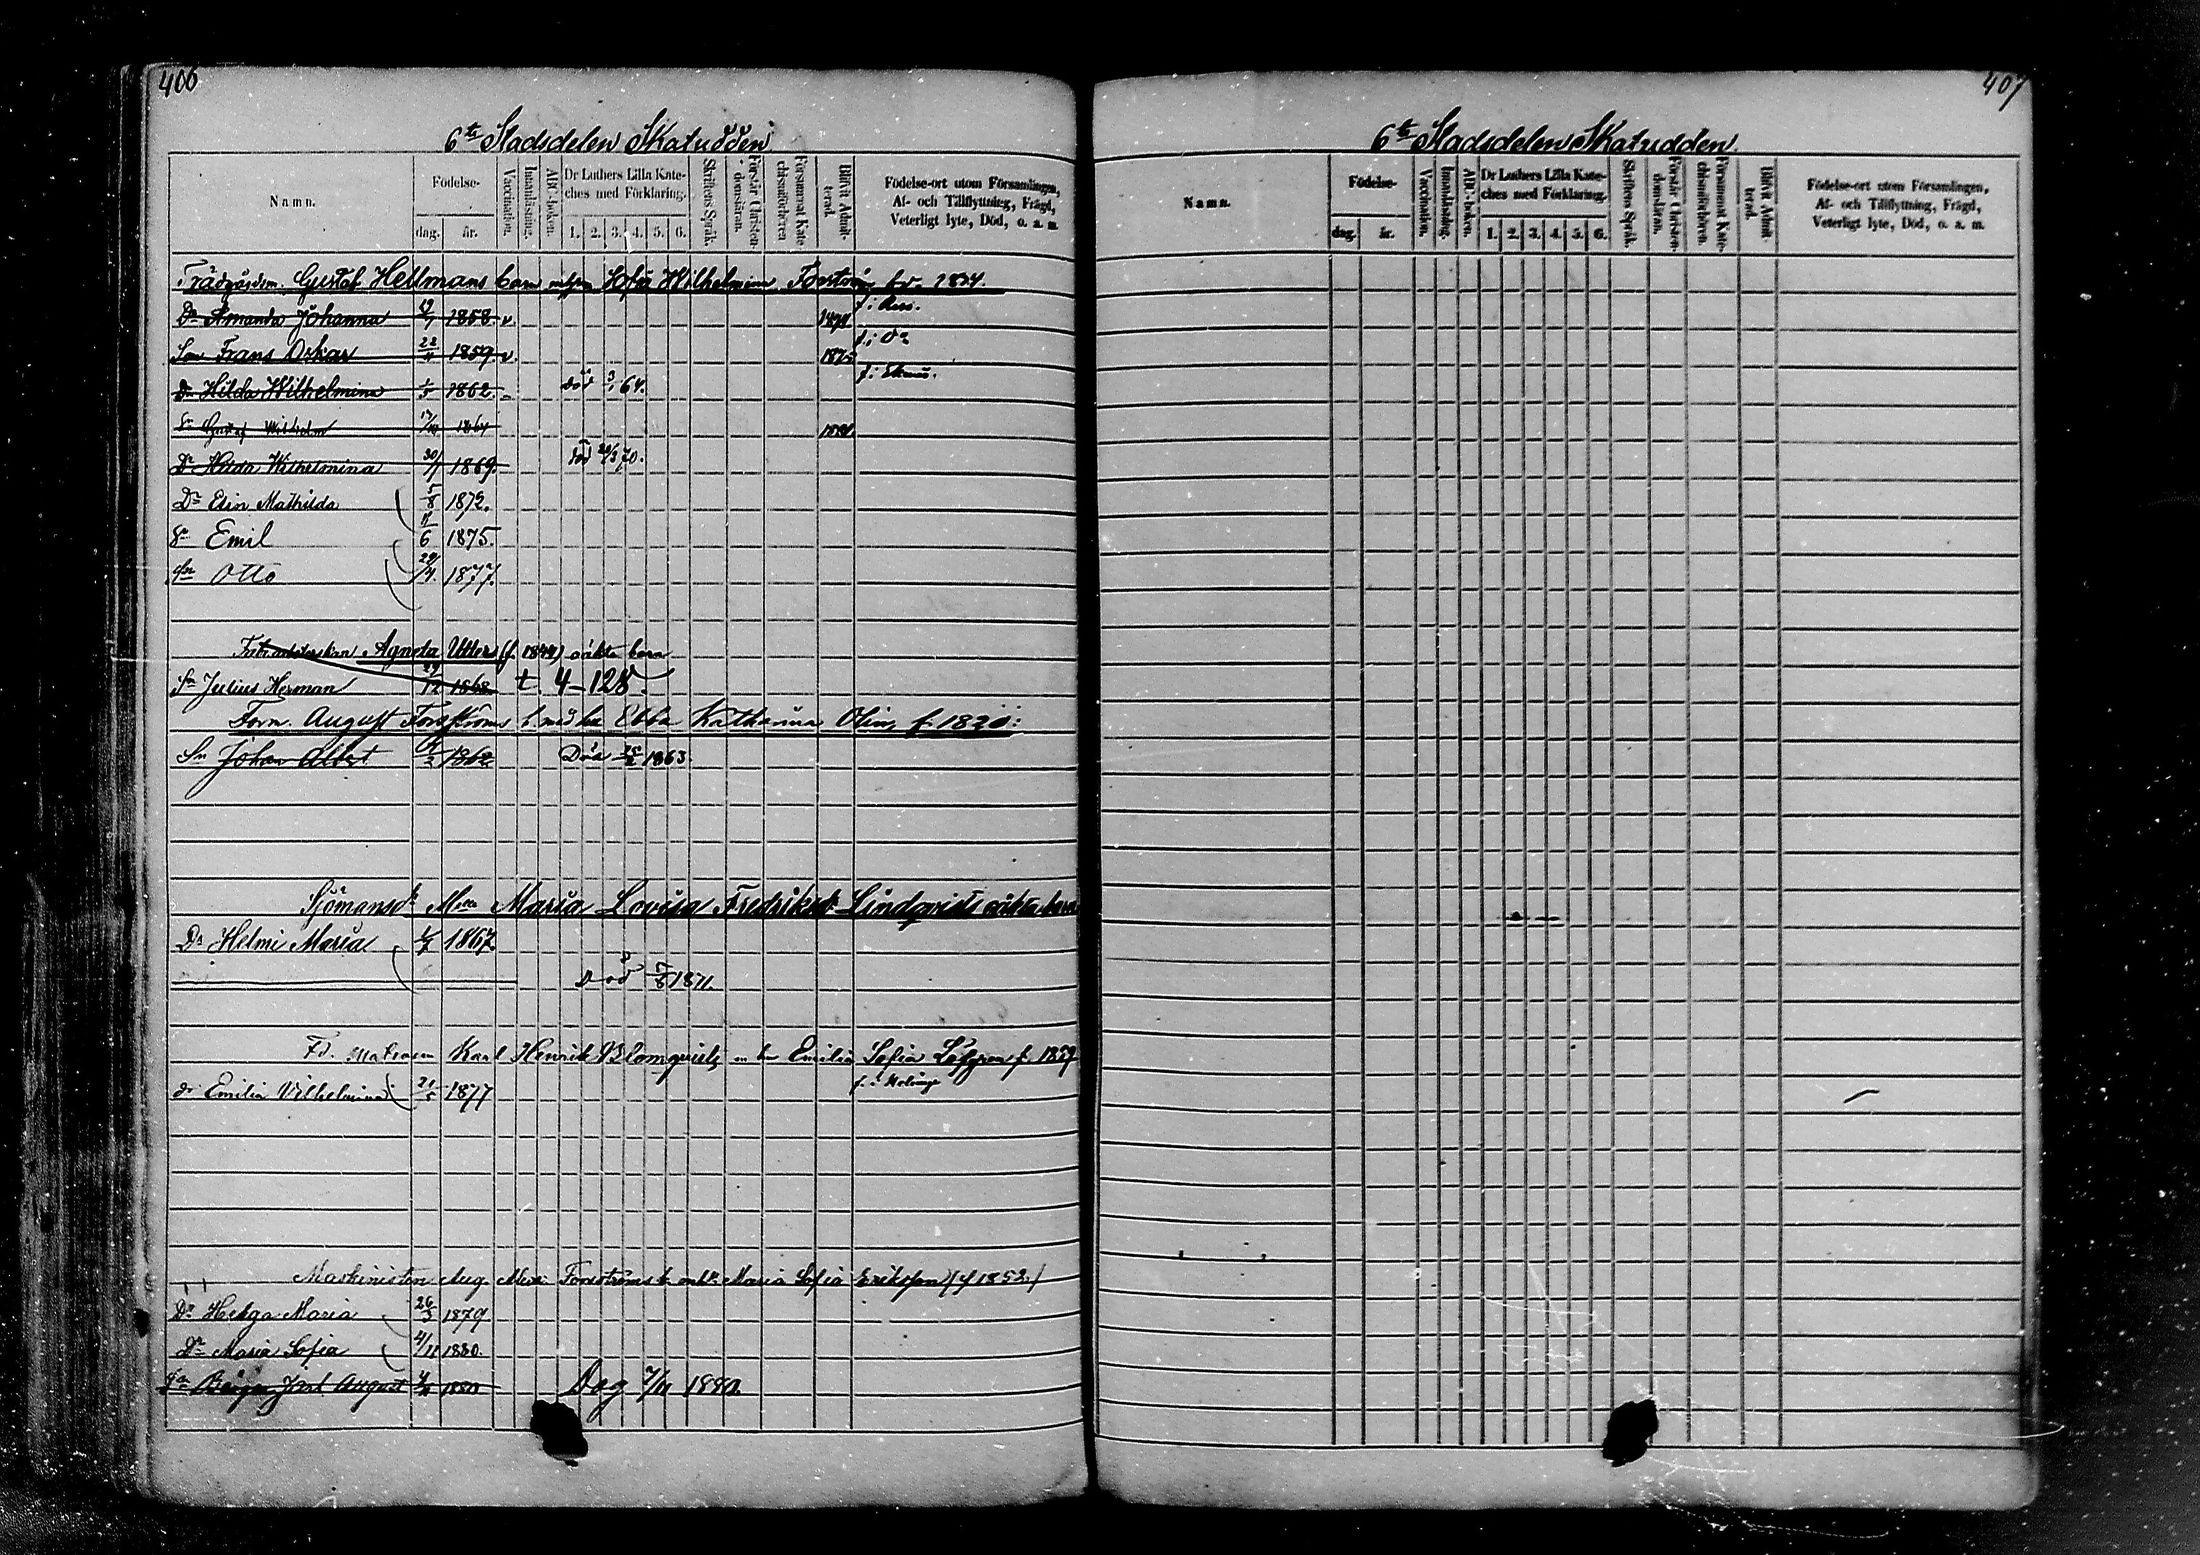 406
6te Stadsdelen Skatudden
Namn.
Födelse-
dag.
år.
Vaccination.
Innanläsning.
ABC-boken.
Dr Luthers Lilla Kate-
ches med Förklaring.
1. 2. 3. 4. 5. 6.
Skriftens Språk.
Förstår Christen-
domsläran.
Försummat Kate-
chismiförhören
Blifvit Admit-
terad.
Födelse-ort utom Församlingen,
Af- och Tillflyttning, Frägd,
Veterligt lyte, Död, o. a. m.
Trädgårdsm. Gustaf Hellmans barn Sofia Wilhelmina 1834.
Dr Amanda Johanna 1858. v.
Son Frans Oskar 1859. v. 1875
Dr Hilda Wilhelmina 1862. död 64.
Sn Gustaf Wilhelm 17/10 1864
Dr Hilda Wilhelmina 30/1 1869. död 70.
Dr Elin Mathilda 5/8 1872.
Sn Emil 6 1875.
Sn Otto 29/4. 1877.
Agneta oäkta barn
Sn Julius Herman 12 1868 t. 4–128.
Form. August Forsströms b. med hu Ebba Katharina Olin, f. 1820:
Sn Johan Albert 1862 Död 1863.
Sjömansd. Maria Lovisa Fredriksd. Lindqvists oäkta barn
Dr Helmi Maria 1867.
Död 1871.
Fd. Matrosen Karl Henrik Blomqvists m hu Emilia Sofia Löfgren f. 1859
dr Emilia Vilhelmina 1877
Maskinisten Aug. Alex. Forsströms b. Maria Sofia Eriksson (f 1852.)
Dr Helga Maria 26/3 1879.
Dr Maria Sofia 4/11 1880.
Sn Birger Jarl August Dog 7/11 1880.
407
6te Stadsdelen Skatudden.
Namn.
Födelse-
dag.
år.
Vaccination.
Innanläsning.
ABC-boken.
Dr Luthers Lilla Kate-
ches med Förklaring.
1. 2. 3. 4. 5. 6.
Skriftens Språk.
Förstår Christen-
domsläran.
Försummat Kate-
chismiförhören.
Blifvit Admit-
terad.
Födelse-ort utom Församlingen,
Af- och Tillflyttning, Frägd,
Veterligt lyte, Död, o. a. m.